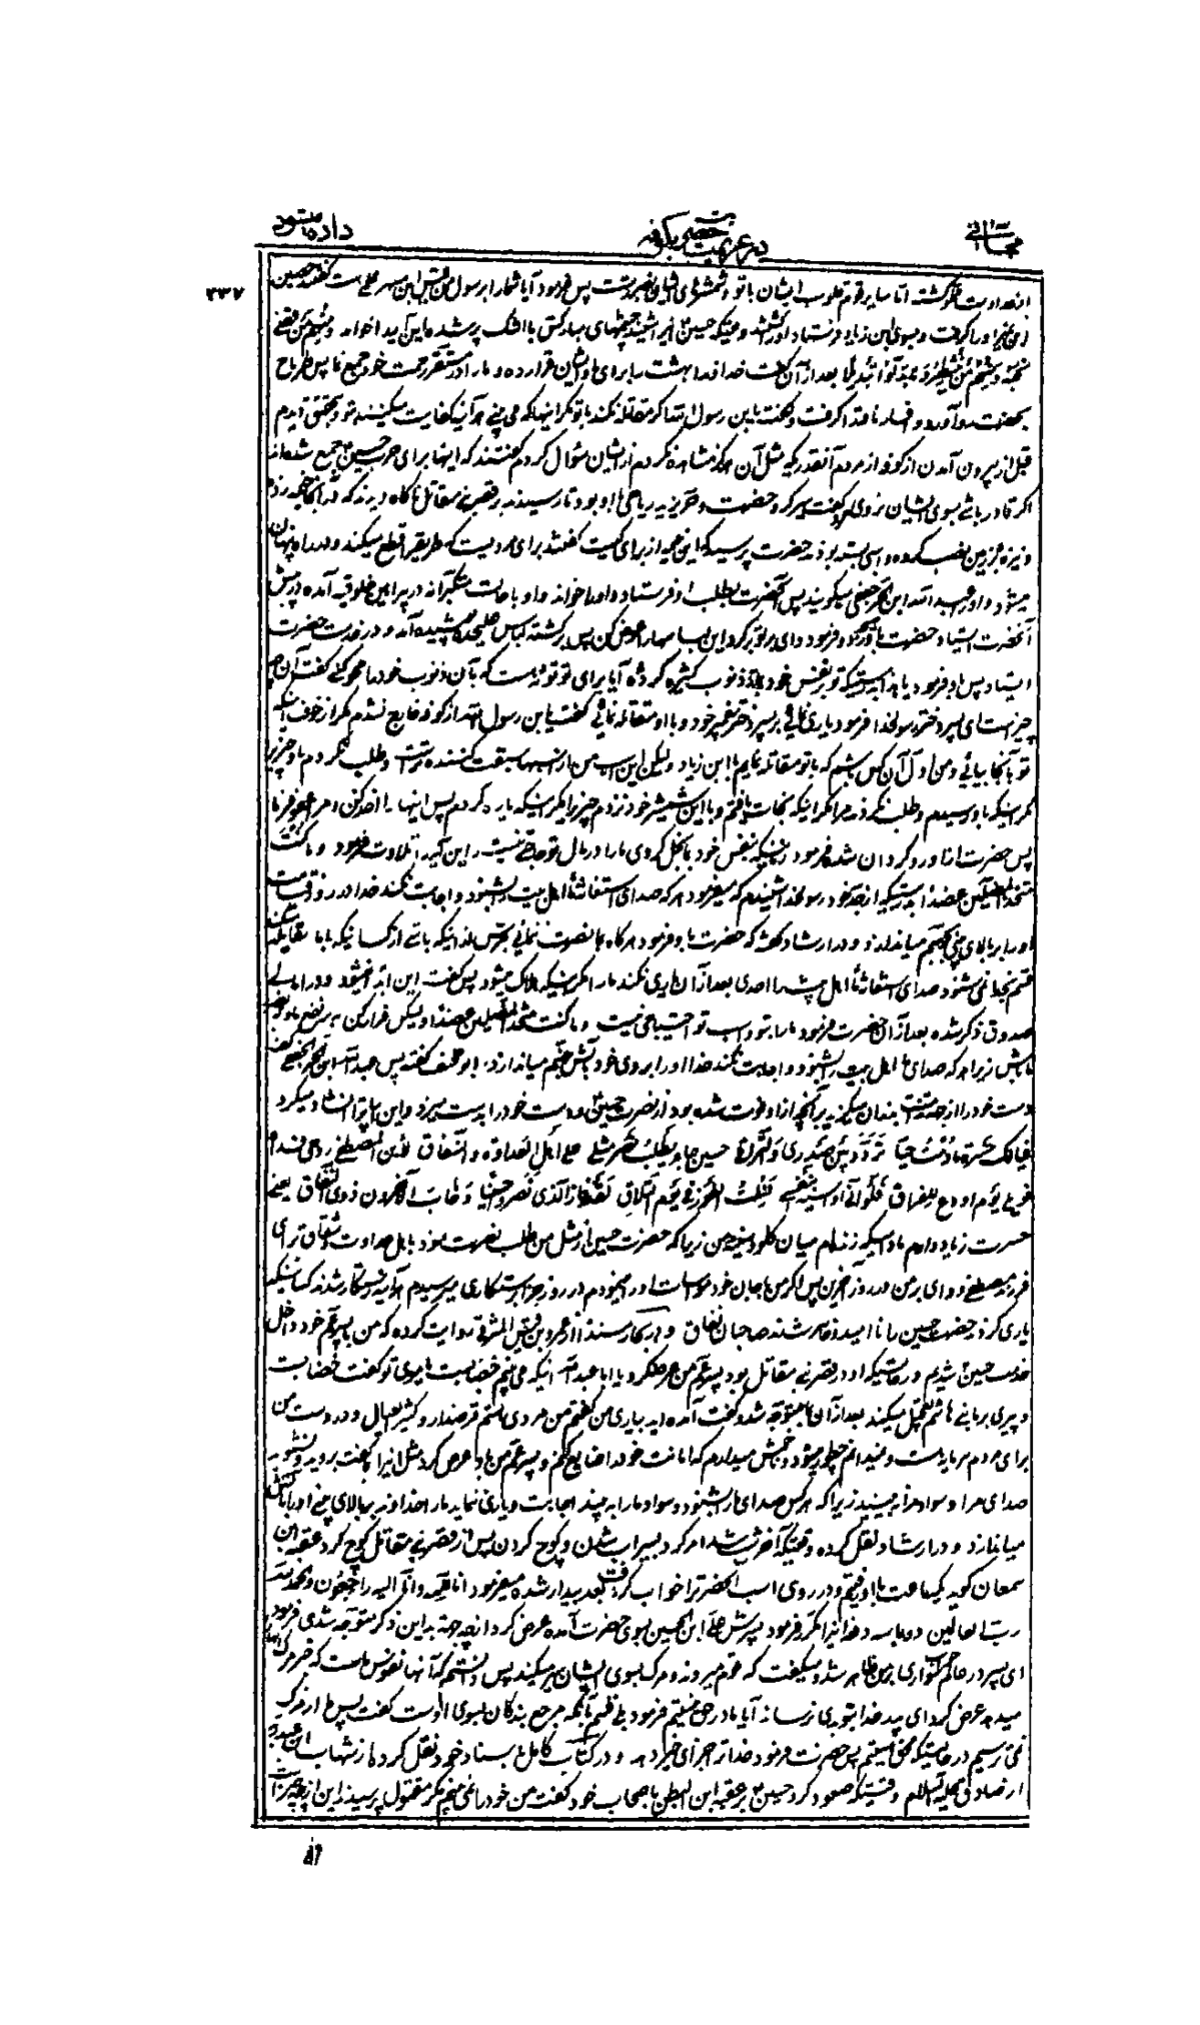 مجالس در عزیمت حضرت بکوفه داده میشود
۲۳۷
از عداوت تو گشته اما سایر قوم قلوب ایشان با تو و شمشیرهای ایشان بضرر تست پس فرمود آیا شما را بر رسول من قیس ابن مسهر علمی هست گفتند حصین
او را گرفت و بسوی ابن زیاد فرستاد او را کشتند وقتیکه حسین این را شنید چشمهای مبارکش با اشک پر شد و این آیه را خواند و منهم من قضی
نحبه و منهم من ینتظر و ما بدلوا تبدیلا بعد از آن گفت خداوندا بهشت را برای ما و ایشان قرار ده و ما را در مستقر رحمت خود جمع نما پس طرماح
بحضرت رو آورد و افسار ناقه را گرفت و گفت یا بن رسول الله اگر مقاتله نکند با تو مگر اینها که می بینم هر آینه کفایت میکنند تو را و بتحقیق دیدم
قبل از بیرون آمدن از کوفه از مردم آنقدر که مثل آن هرگز مشاهده نکردم از ایشان سؤال کردم گفتند که اینها برای حرب حسین جمع شده اند
اگر قادر باشی بسوی ایشان نروی پس حضرت و حر بن یزید ریاحی با او بود تا رسیدند بقصر بنی مقاتل ناگاه دیدند که در آنجا خیمه زده
و نیزه بر زمین نصب کرده و اسبی بسته بودند حضرت پرسید که این خیمه از برای کیست گفتند برای مردیست که طریق را قطع میکند و در راه پنهان
میشود و او را عبید الله ابن الحر جعفی میگویند پس آنحضرت بطلب او فرستاد و او را خواند و او با حالت متکبرانه در پیراهن خلوقیه آمده در پیش
آنحضرت ایستاد و حضرت باو فرمود وای بر تو برگرد این لباسها را عوض کن پس برگشته لباس پوشیده آمد و در خدمت حضرت
ایستاد پس باو فرمود یا هذا بدرستیکه تو بر نفس خود ذنوب کثیره کرده آیا برای تو توبه هست که بآن ذنوب خود را محو کنی گفت آن چه
چیز است ای پسر دختر رسولخدا فرمود یاری نمائی بر پسر دختر پیغمبر خود و با او مقاتله نمائی گفت یا بن رسول الله از کوفه خارج نشدم مگر از خوف اینکه
تو بآنجا بیائی و من اول آن کس باشم که با تو مقاتله نمایم با ابن زیاد ولیکن این اسب من از اسبها سبقت کننده تر است و طلب نکردم باو چیزی
مگر اینکه باو رسیدم و طلب نکردند مرا مگر اینکه نجات یافتم و با این شمشیر خود نزدم چیزی مگر اینکه پاره کردم پس اینها را اخذ کن و مرا عفو فرما
پس حضرت از او روگردان شد فرمود زمانیکه بنفس خود با ما بخل کردی ما را در مال تو حاجتی نیست و این آیه را تلاوت فرمود و ما کنت
متخذ المضلین عضدا بدرستیکه از جد خود رسولخدا شنیدم که میفرمود هر که صدای استغاثه اهل بیت را بشنود و اجابت نکند خدا در روز قیامت
او را بر بالای بینی بجهنم میاندازد و در ارشاد گفته که حضرت باو فرمود هرگاه بما نصرت ننمائی بترس از اینکه باشی از کسانیکه با ما مقاتله میکنند
قسم بخدا نمی شنود صدای استغاثه اهل بیت را احدی بعد از آن یاری نکند ما را مگر اینکه هلاک میشود پس گفت این ابدا نمیشود و در امالی
صدوق ذکر شده بعد از آن حضرت فرمود ما را بتو و اسب تو احتیاجی نیست و ما کنت متخذ المضلین عضدا ولیکن فرار کن
مباش زیرا هر که صدای ما اهل بیت را بشنود و اجابت نکند خدا او را بروی خود بآتش جهنم میاندازد ابو مخنف گفته پس عبید الله ابن الحر الجعفی
دست خود را از جهت بدندان میگزید بر آنچه از او فوت شده بود از نصرت حسین و دست خود را بدست میزد و این ابیات را انشاد میکرد
فیا لک حسرة ما دمت حیا تردد بین صدری والتراقی حسین حین یطلب نصر مثلی علی اهل العداوة والشقاق لابن المصطفی روحی فداه
فویلی یوم اودع للفراق فلو انی اواسیه بنفسی لنلت الفوز فی یوم التلاق لقد فاز الذی نصر حسینا وخاب الآخرون ذوی النفاق یعنی
حسرت زیاد دارم مادامیکه زنده ام میان گلو و سینه من زیرا که حضرت حسین از مثل من طلب نصرت نمود با اهل عداوت و شقاق برای
فرزند مصطفی وای بر من در روز آخرین پس اگر من با جان خود مواسات او را مینمودم در روز جزا برستگاری میرسیدم هر آینه رستگار شدند کسانیکه
یاری کردند حضرت حسین را ناامید و خاسر شدند صاحبان نفاق و در بحار مسندا از عمرو بن قیس المشرقی روایت کرده که من با پسر عم خود داخل
خدمت حسین شدیم در حالتیکه او در قصر بنی مقاتل بود پسر عم من عرض کرد یا ابا عبد الله اینکه می بینم خضابست یا موی تو گفت خضابست
و پیری بر بنی هاشم تعجیل میکند بعد از آن بما متوجه شد و گفت آمده اید بیاری من گفتم من مردی هستم قرضدار و کثیر العیال و در دست من
برای مردم سرمایه هست و نمیدانم چطور میشود و خوش میدارم که امانت خود را ضایع نکنم و پسر عم من باو عرض کرد مثل اینرا گفت بروید و نشنوید
صدای مرا و سواد مرا نه بینید زیرا که هر کس صدای ما را بشنود و سواد ما را به بیند اجابت و یاری ننماید ما را خداوند بر بالای بینی او را بآتش
میاندازد و در ارشاد نقل کرده وقتیکه آخر شب شد امر کرد بسیراب شدن و کوچ کردن پس از قصر بنی مقاتل کوچ کرد عقبه ابن
سمعان گوید یکساعت با او رفتیم و در روی اسب آنحضرت را خواب گرفت بعد بیدار شده میفرمود انا لله و انا الیه راجعون و الحمد لله
رب العالمین دو یا سه دفعه اینرا مکرر فرمود پسرش علی ابن الحسین بسوی حضرت آمده عرض کرد از چه جهت باین ذکر متوجه شدی فرمود
ای پسر در خواب سواری بر من ظاهر شد و میگفت که قوم میروند و مرگ بسوی ایشان سیر میکند پس دانستم که آنها نفوس ماست که خبر مرگ ما
میدهد عرض کرد ای پدر خدا بتو بدی نرساند آیا ما در حق نیستیم فرمود بلی قسم بآنکه مرجع بندگان بسوی اوست گفت پس ما از مرگ
نمی ترسیم در حالتیکه محق هستیم پس حضرت فرمود خدا ترا جزای خیر دهد و در کتاب کامل باسناد خود نقل کرده از شهاب ابن عبد ربه
از صادق علیه السلام وقتیکه صعود کرد حسین بر عقبه ابن البطن باصحاب خود گفت من خود را نمی بینم مگر مقتول پرسیدند این از چه جهت است